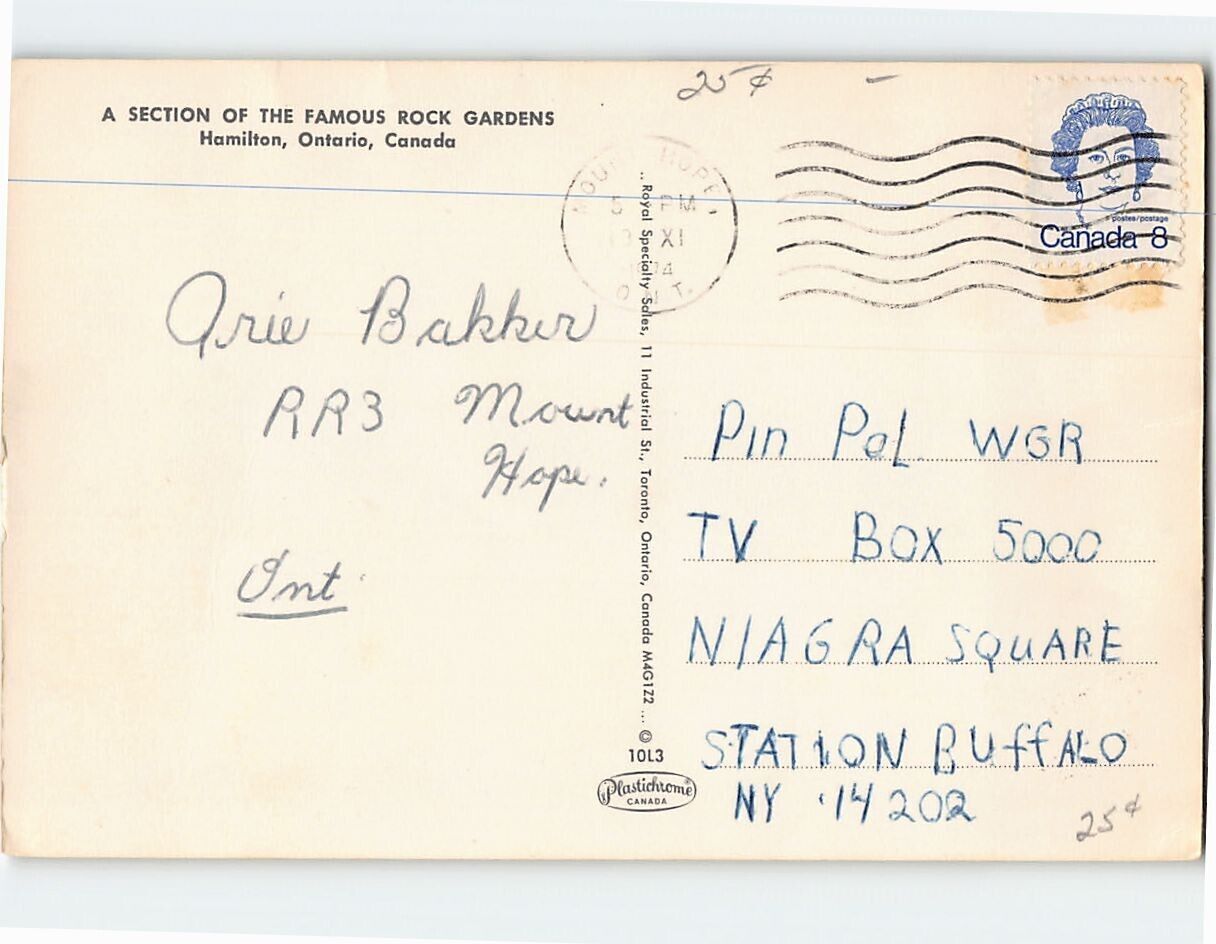 25¢ –
A SECTION OF THE FAMOUS ROCK GARDENS
Hamilton, Ontario, Canada
MOUNT HOPE
5 PM
XI
1974
ONT.
postes/postage
Canada 8
Arie Bakker
RR3 Mount
Hope.
Ont
.. Royal Specialty Sales, 11 Industrial St., Toronto, Ontario, Canada M4G1Z2 ... ©
10L3
Plastichrome®
CANADA
Pin Pal WGR
TV BOX 5000
NIAGRA SQUARE
STATION BUffALO
NY 14202
25¢